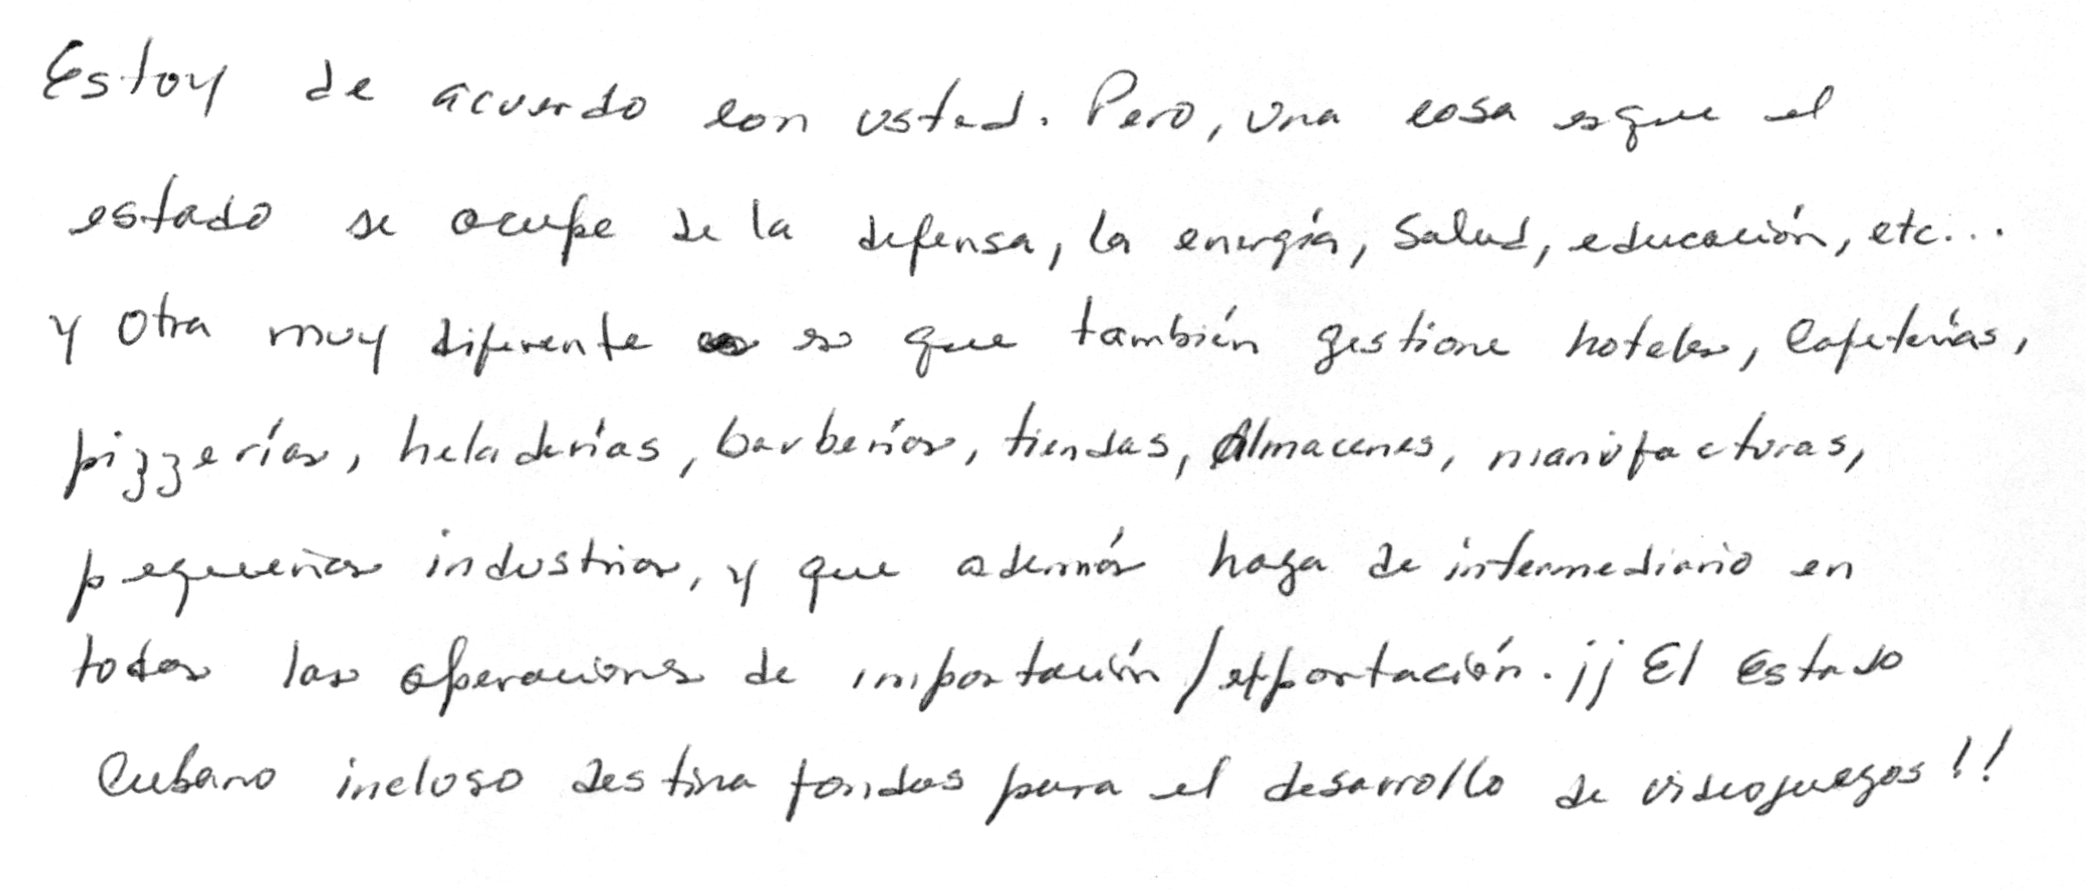 Estoy de acuerdo con usted. Pero, una cosa es que el
estado se ocupe de la defensa, la energía, salud, educación, etc...
y otra muy diferente es que también gestione hoteles, cafeterías,
pizzerías, heladerías, barberías, tiendas, almacenes, manufacturas,
pequeñas industrias, y que además haga de intermediario en
todas las operaciones de importación/exportación. ¡¡ El Estado
Cubano incluso destina fondos para el desarrollo de videojuegos!!